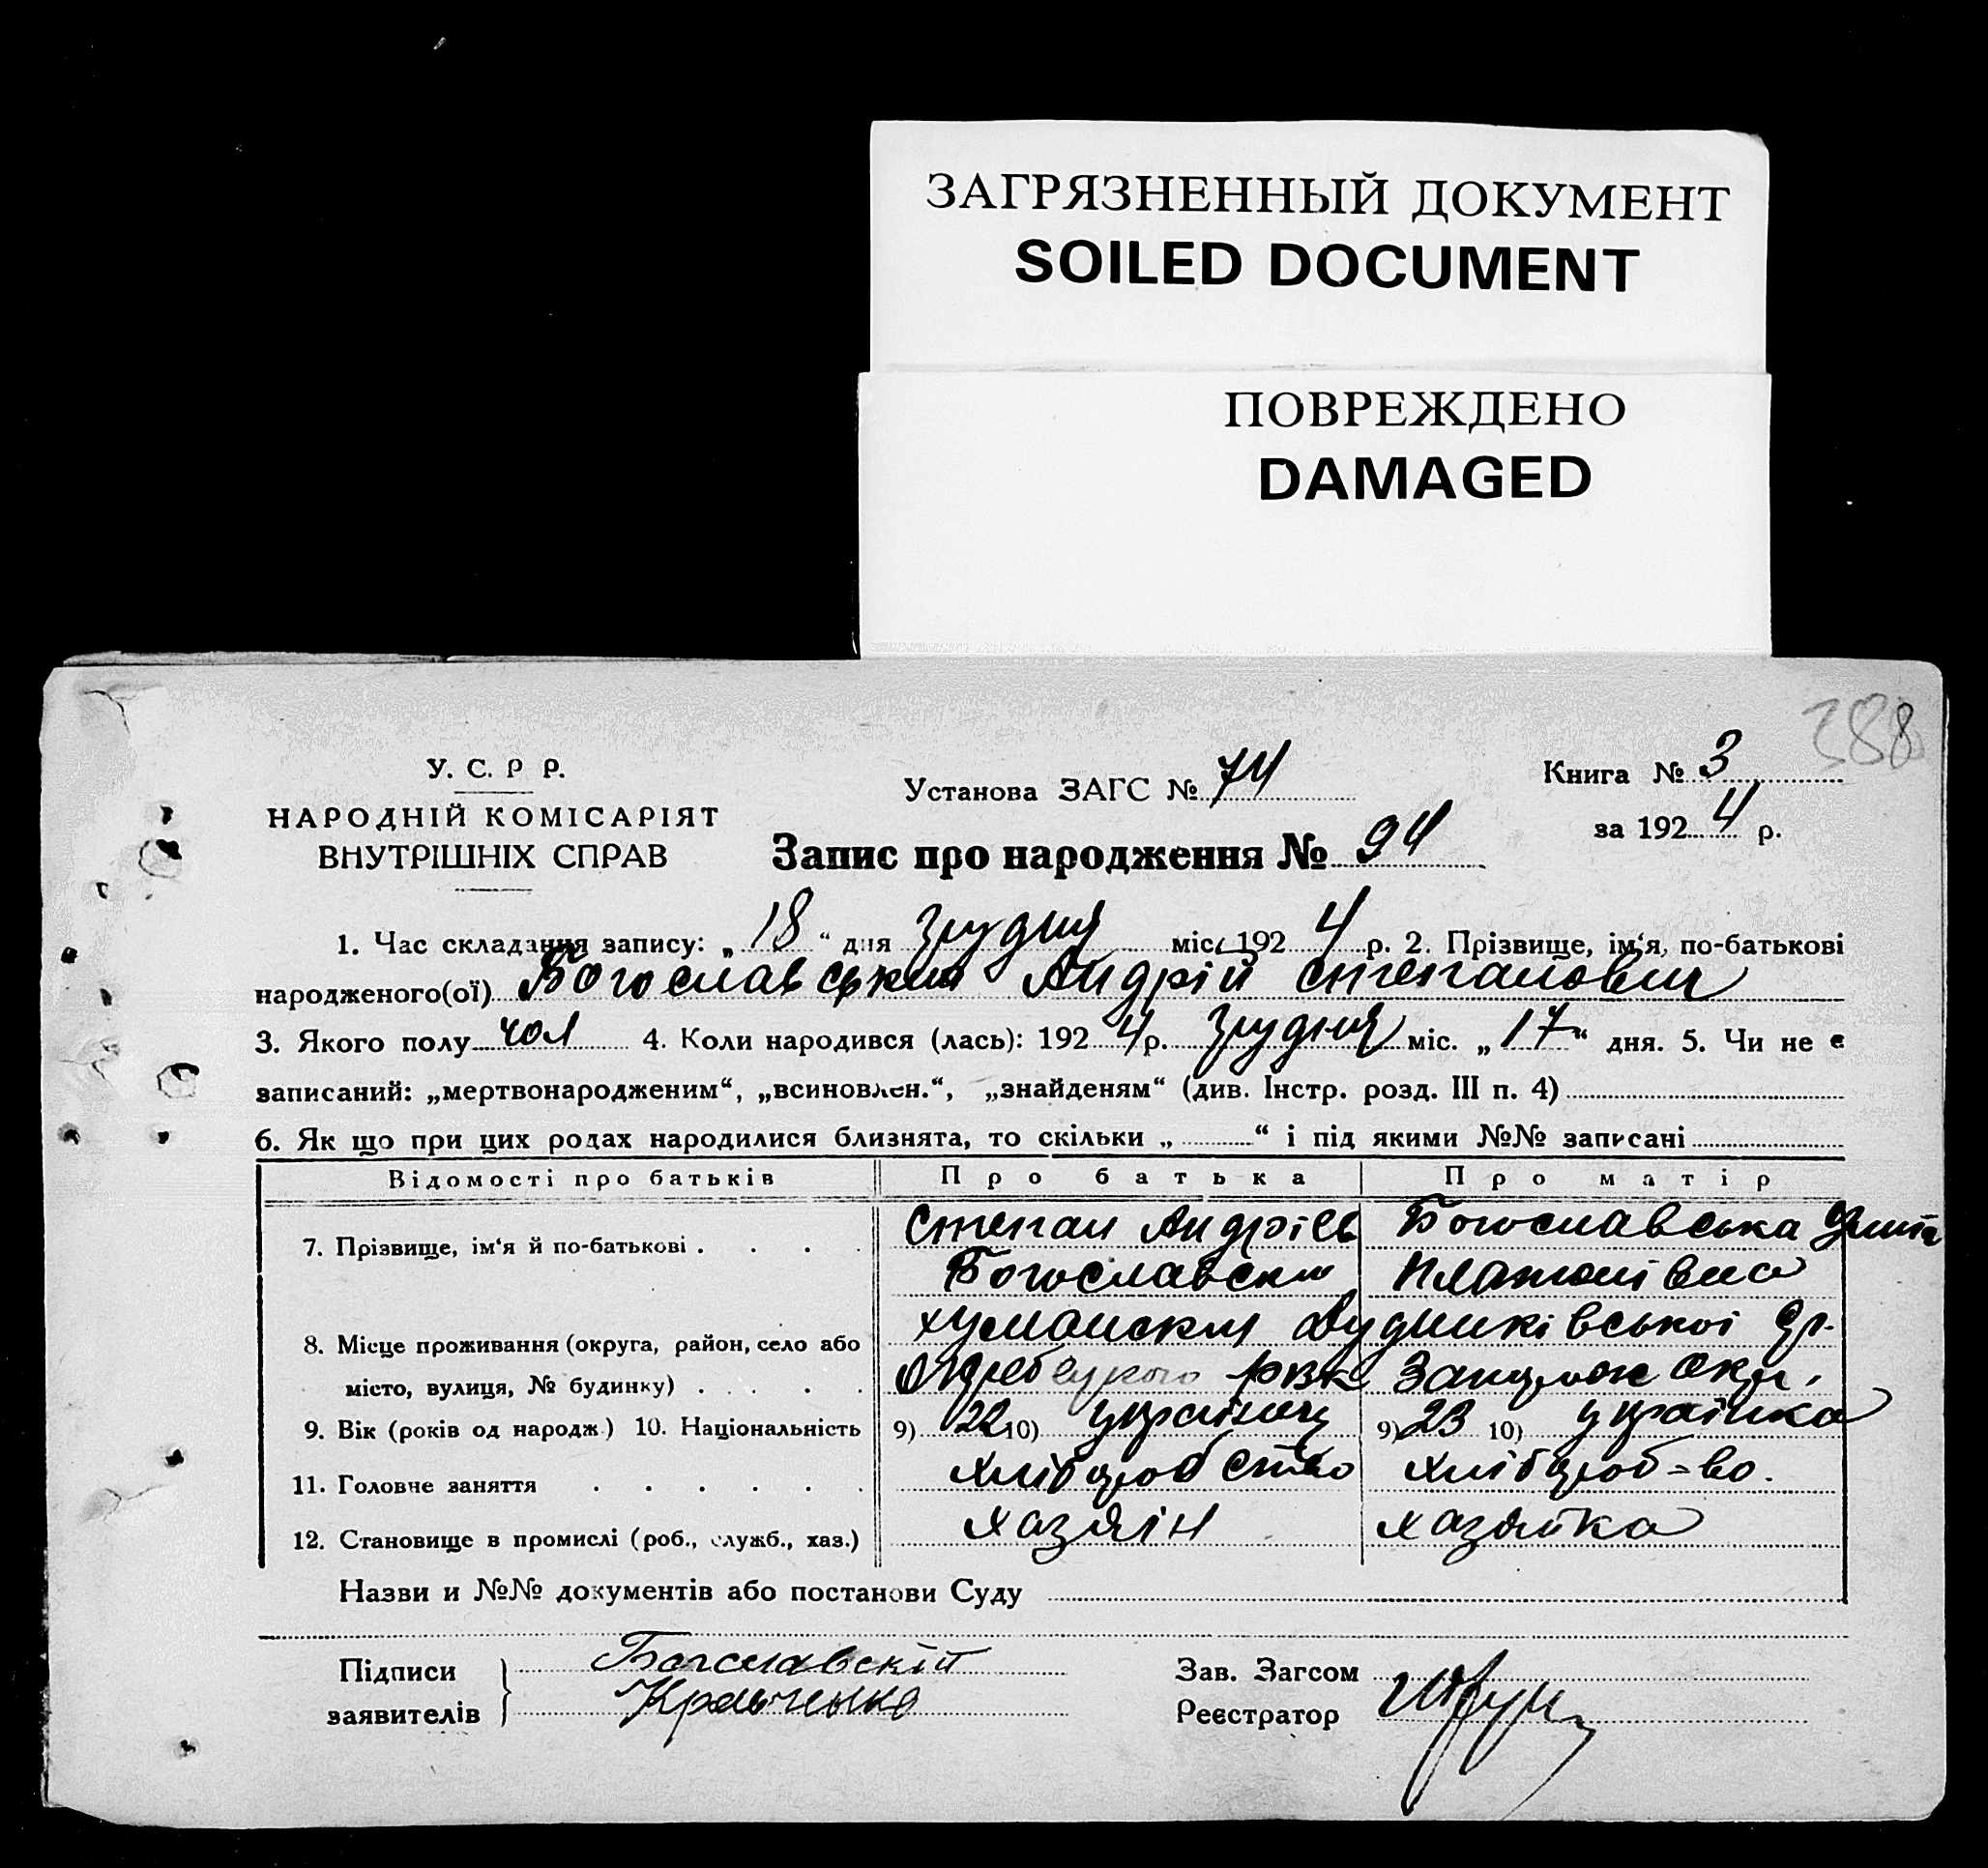 ЗАГРЯЗНЕННЫЙ ДОКУМЕНТ
SOILED DOCUMENT
ПОВРЕЖДЕНО
DAMAGED
388
У. С. Р Р.
НАРОДНІЙ КОМІСАРІЯТ
ВНУТРІШНІХ СПРАВ
Установа ЗАГС № 74
Книга № 3
за 1924 р.
Запис про народження № 94
1. Час складання запису: „18“ дня грудня міс. 1924 р. 2. Прізвище, ім‘я, по-батькові
народженого(ої) Богославський Андрій Степанович
3. Якого полу чол 4. Коли народився (лась): 1924 р. грудня міс. „17“ дня. 5. Чи не є
записаний: „мертвонародженим“, „всиновлен.“, „знайденям“ (див. Інстр. розд. III п. 4)
6. Як що при цих родах народилися близнята, то скільки „ “ і під якими №№ записані
Відомості про батьків Про батька Про матір
7. Прізвище, ім‘я й по-батькові Степан Андріев Богославська
Богославски Платонівна
8. Місце проживання (округа, район, село або
місто, вулиця, № будинку) рвк Запорож Окр.
9. Вік (років од народж.) 10. Національність 9) 22 10) українец 9) 23 10) українка
11. Головне заняття хлібороб ство хлібороб-во.
12. Становище в промислі (роб., служб., хаз.) хазяїн хазяйка
Назви и №№ документів або постанови Суду
Підписи
заявителів
Богославскій
Кравченко
Зав. Загсом
Реєстратор